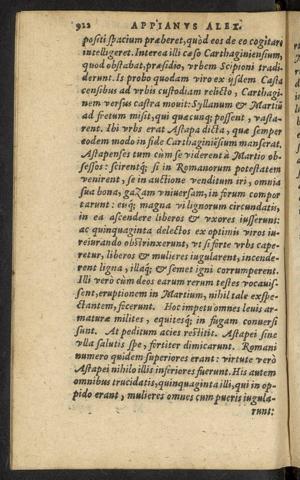 922 APPIANVS ALEX.
posci spacium præberet, quòd eos de eo cogitare
intelligeret. Interea illi cæso Carthaginensium,
quod obstabat, præsidio, vrbem Scipioni tradi-
derunt. Is probo quodam viro ex ijsdem Casta
censibus ad vrbis custodiam relicto, Carthagi-
nem versus castra mouit: Syllanum & Martiũ
ad fretum misit, qui quæcunq; possent, vasta-
rent. Ibi vrbs erat Astapa dicta, quæ semper
eodem modo in fide Carthaginiẽsium manserat.
Astapenses tum cùm se viderent à Martio ob-
sessos: scirentq; si in Romanorum potestatem
venirent, se in auctione venditum iri, omnia
sua bona, gazam vniuersam, in forum compor
tarunt: eiq; magna vi lignorum circundatis,
in ea ascendere liberos & vxores iusserunt:
ac quinquaginta delectos ex optimis viros iu-
reiurando obstrinxerunt, vt si forte vrbs cape-
retur, liberos & mulieres iugularent, incende-
rent ligna, illaq; & semet igni corrumperent.
Illi verò cùm deos earum rerum testes vocauis-
sent, eruptionem in Martium, nihil tale exspe-
ctantem, fecerunt. Hoc impetu omnes leuis ar-
maturæ militer, equitesq; in fugam conuersi
sunt. At peditum acies restitit. Astapei sine
vlla salutis spe, fortiter dimicarunt. Romani
numero quidem superiores erant: virtute verò
Astapei nihilo illis inferiores fuerunt. His autem
omnibus trucidatis, quinquaginta illi, qui in op-
pido erant, mulieres omnes cum pueris iugula-
runt: